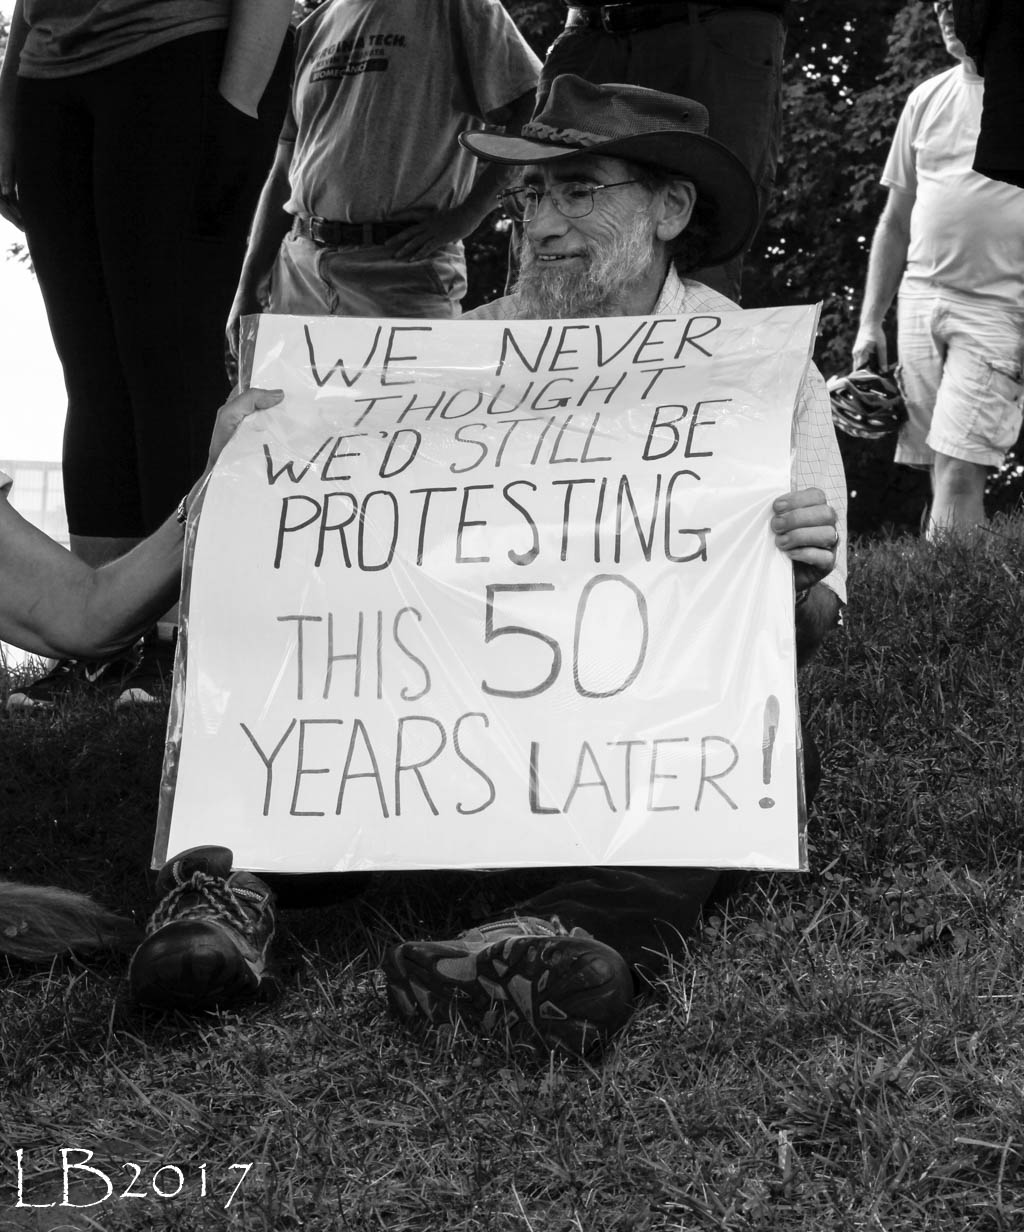 VIRGINIA TECH
WE NEVER
THOUGHT
WE'D STILL BE
PROTESTING
THIS 50
YEARS LATER!
LB2017